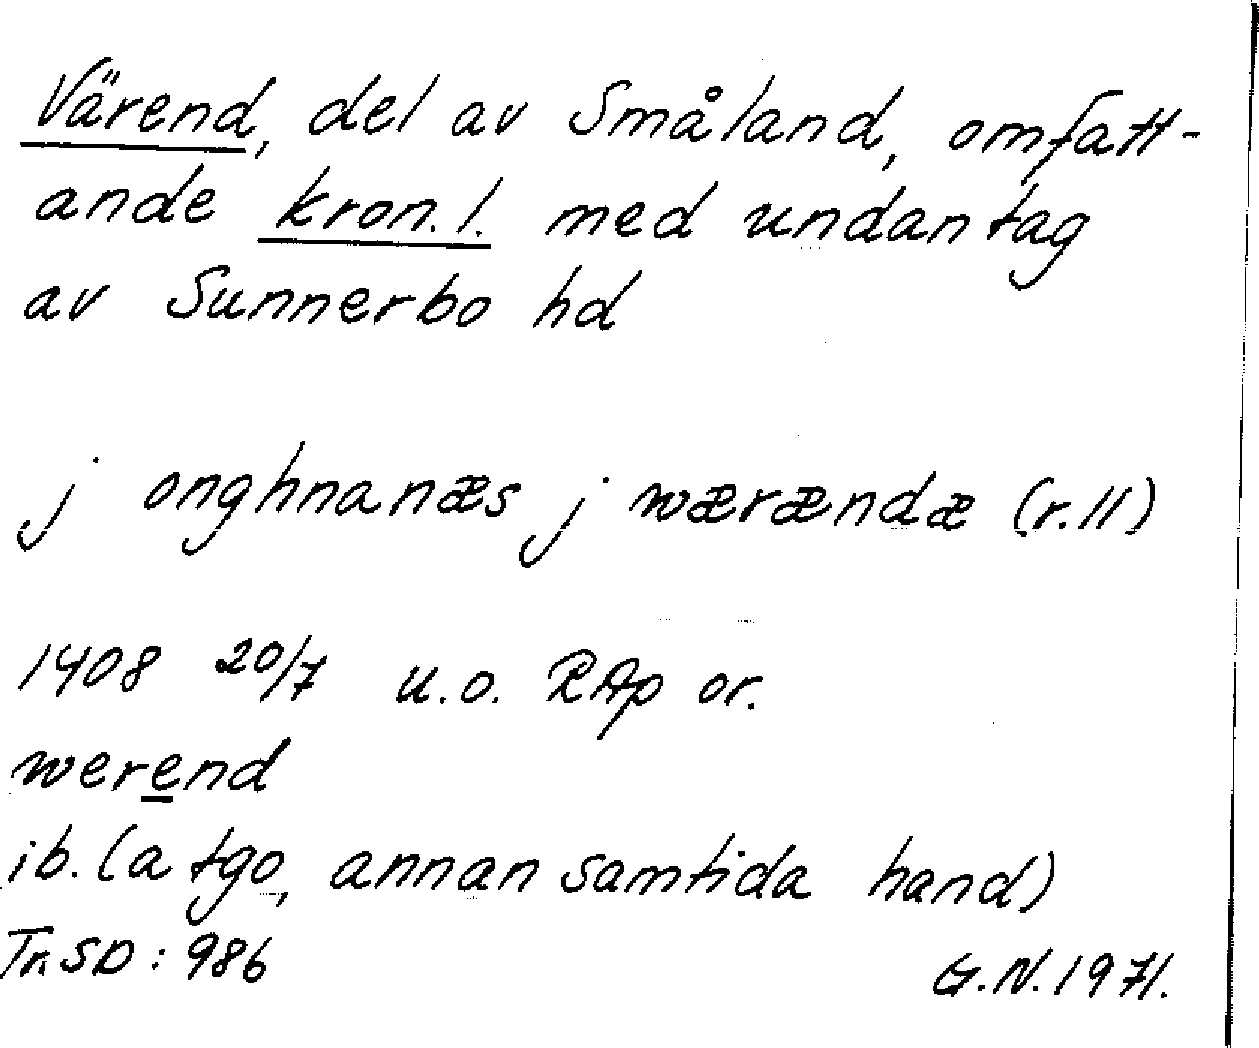 Värend, del av Småland, omfatt-
ande kron.l. med undantag
av Sunnerbo hd
j onghnanæs j wærændæ (r.11)
1408 20/7 u.o. RAp or.
werend
ib. (a tgo, annan samtida hand)
Tr. SD: 986
G.N. 1971.